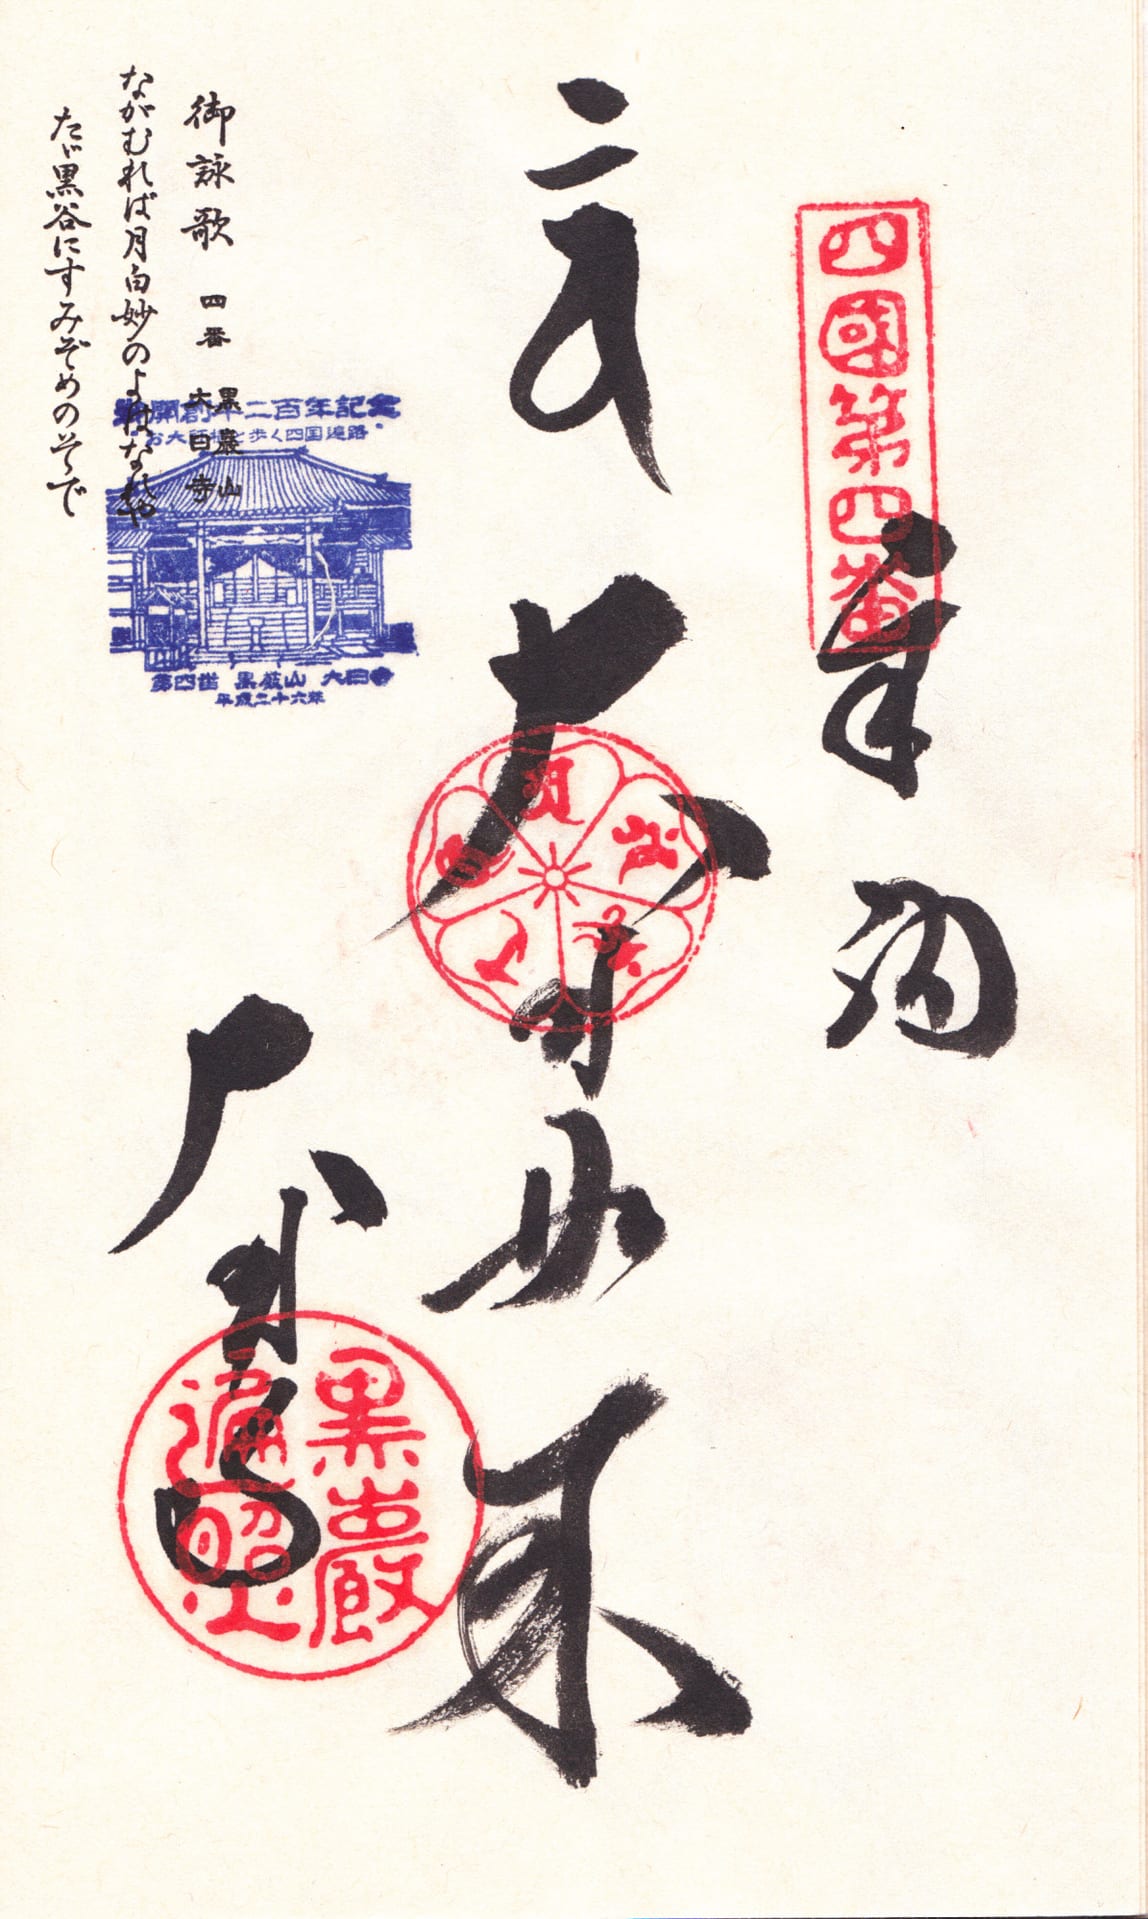 四國第四番
奉納
大日如来
大日寺
黒巖山
遍照
御詠歌 四番 黒巖山
大日寺
ながむれば月白妙のよはなれや
たゞ黒谷にすみぞめのそで
開創千二百年記念
お大師様と歩く四国遍路
第四番 黒巌山 大日寺
平成二十六年